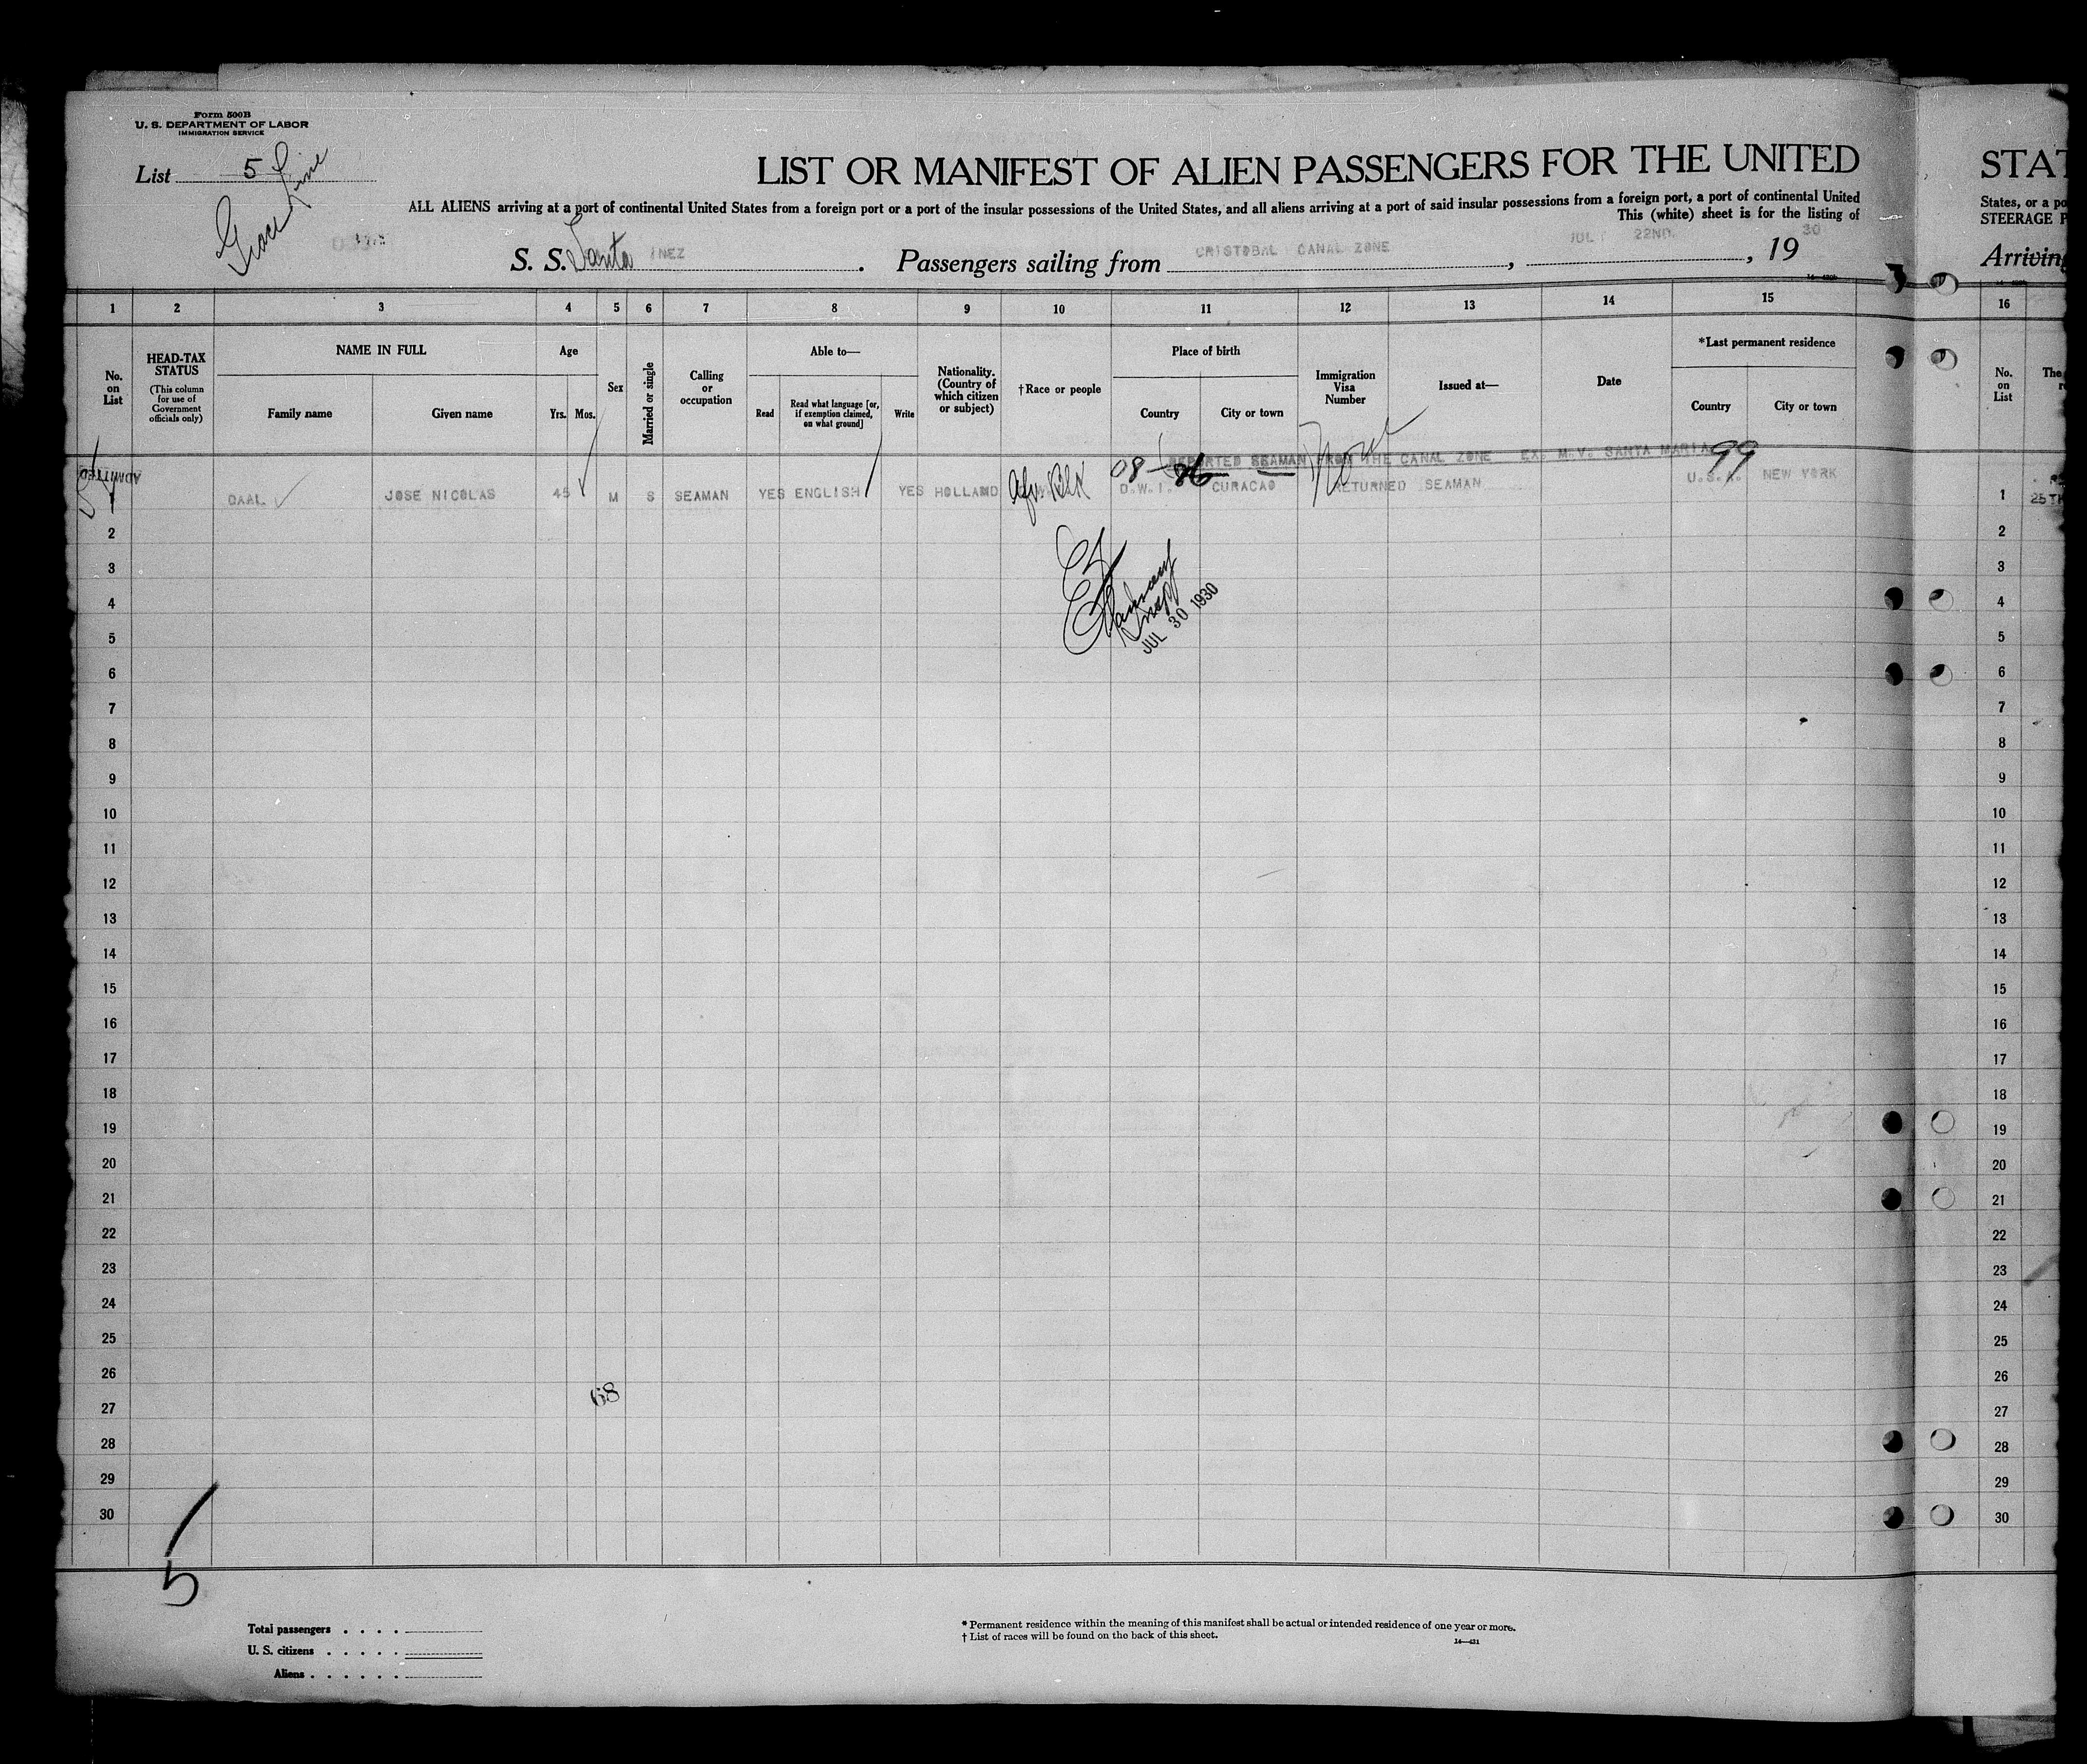 Form 500B
U. S. DEPARTMENT OF LABOR
IMMIGRATION SERVICE
List 5
Grace Line
LIST OR MANIFEST OF ALIEN PASSENGERS FOR THE UNITED
STAT
ALL ALIENS arriving at a port of continental United States from a foreign port or a port of the insular possessions of the United States, and all aliens arriving at a port of said insular possessions from a foreign port, a port of continental United
States, or a po
This (white) sheet is for the listing of
STEERAGE P
S. S. Santa INEZ . Passengers sailing from CRISTOBAL CANAL ZONE , JULY 22ND. , 19 30
Arriving
1 2 3 4 5 6 7 8 9 10 11 12 13 14 15 16
No. on List
HEAD-TAX STATUS
(This column for use of Government officials only)
NAME IN FULL
Family name
Given name
Age
Yrs. Mos.
Sex
Married or single
Calling or occupation
Able to—
Read
Read what language [or, if exemption claimed, on what ground]
Write
Nationality. (Country of which citizen or subject)
†Race or people
Place of birth
Country
City or town
Immigration Visa Number
Issued at—
Date
*Last permanent residence
Country
City or town
No. on List
The
ADMITTED
08 - 86 99
DEPORTED SEAMAN FROM THE CANAL ZONE EX. M.V. SANTA MARIA
1 DAAL JOSE NICOLAS 45 M S SEAMAN YES ENGLISH YES HOLLAND Afr. Blk D.W.I. CURACAO RETURNED SEAMAN U.S.A. NEW YORK 1
25TH
2 2
3 3
4 4
JUL 30 1930
5 5
6 6
7 7
8 8
9 9
10 10
11 11
12 12
13 13
14 14
15 15
16 16
17 17
18 18
19 19
20 20
21 21
22 22
23 23
24 24
25 25
26 26
68
27 27
28 28
29 29
30 30
5
Total passengers . . . .
U. S. citizens . . . . .
Aliens . . . . . .
* Permanent residence within the meaning of this manifest shall be actual or intended residence of one year or more.
† List of races will be found on the back of this sheet.
14—421